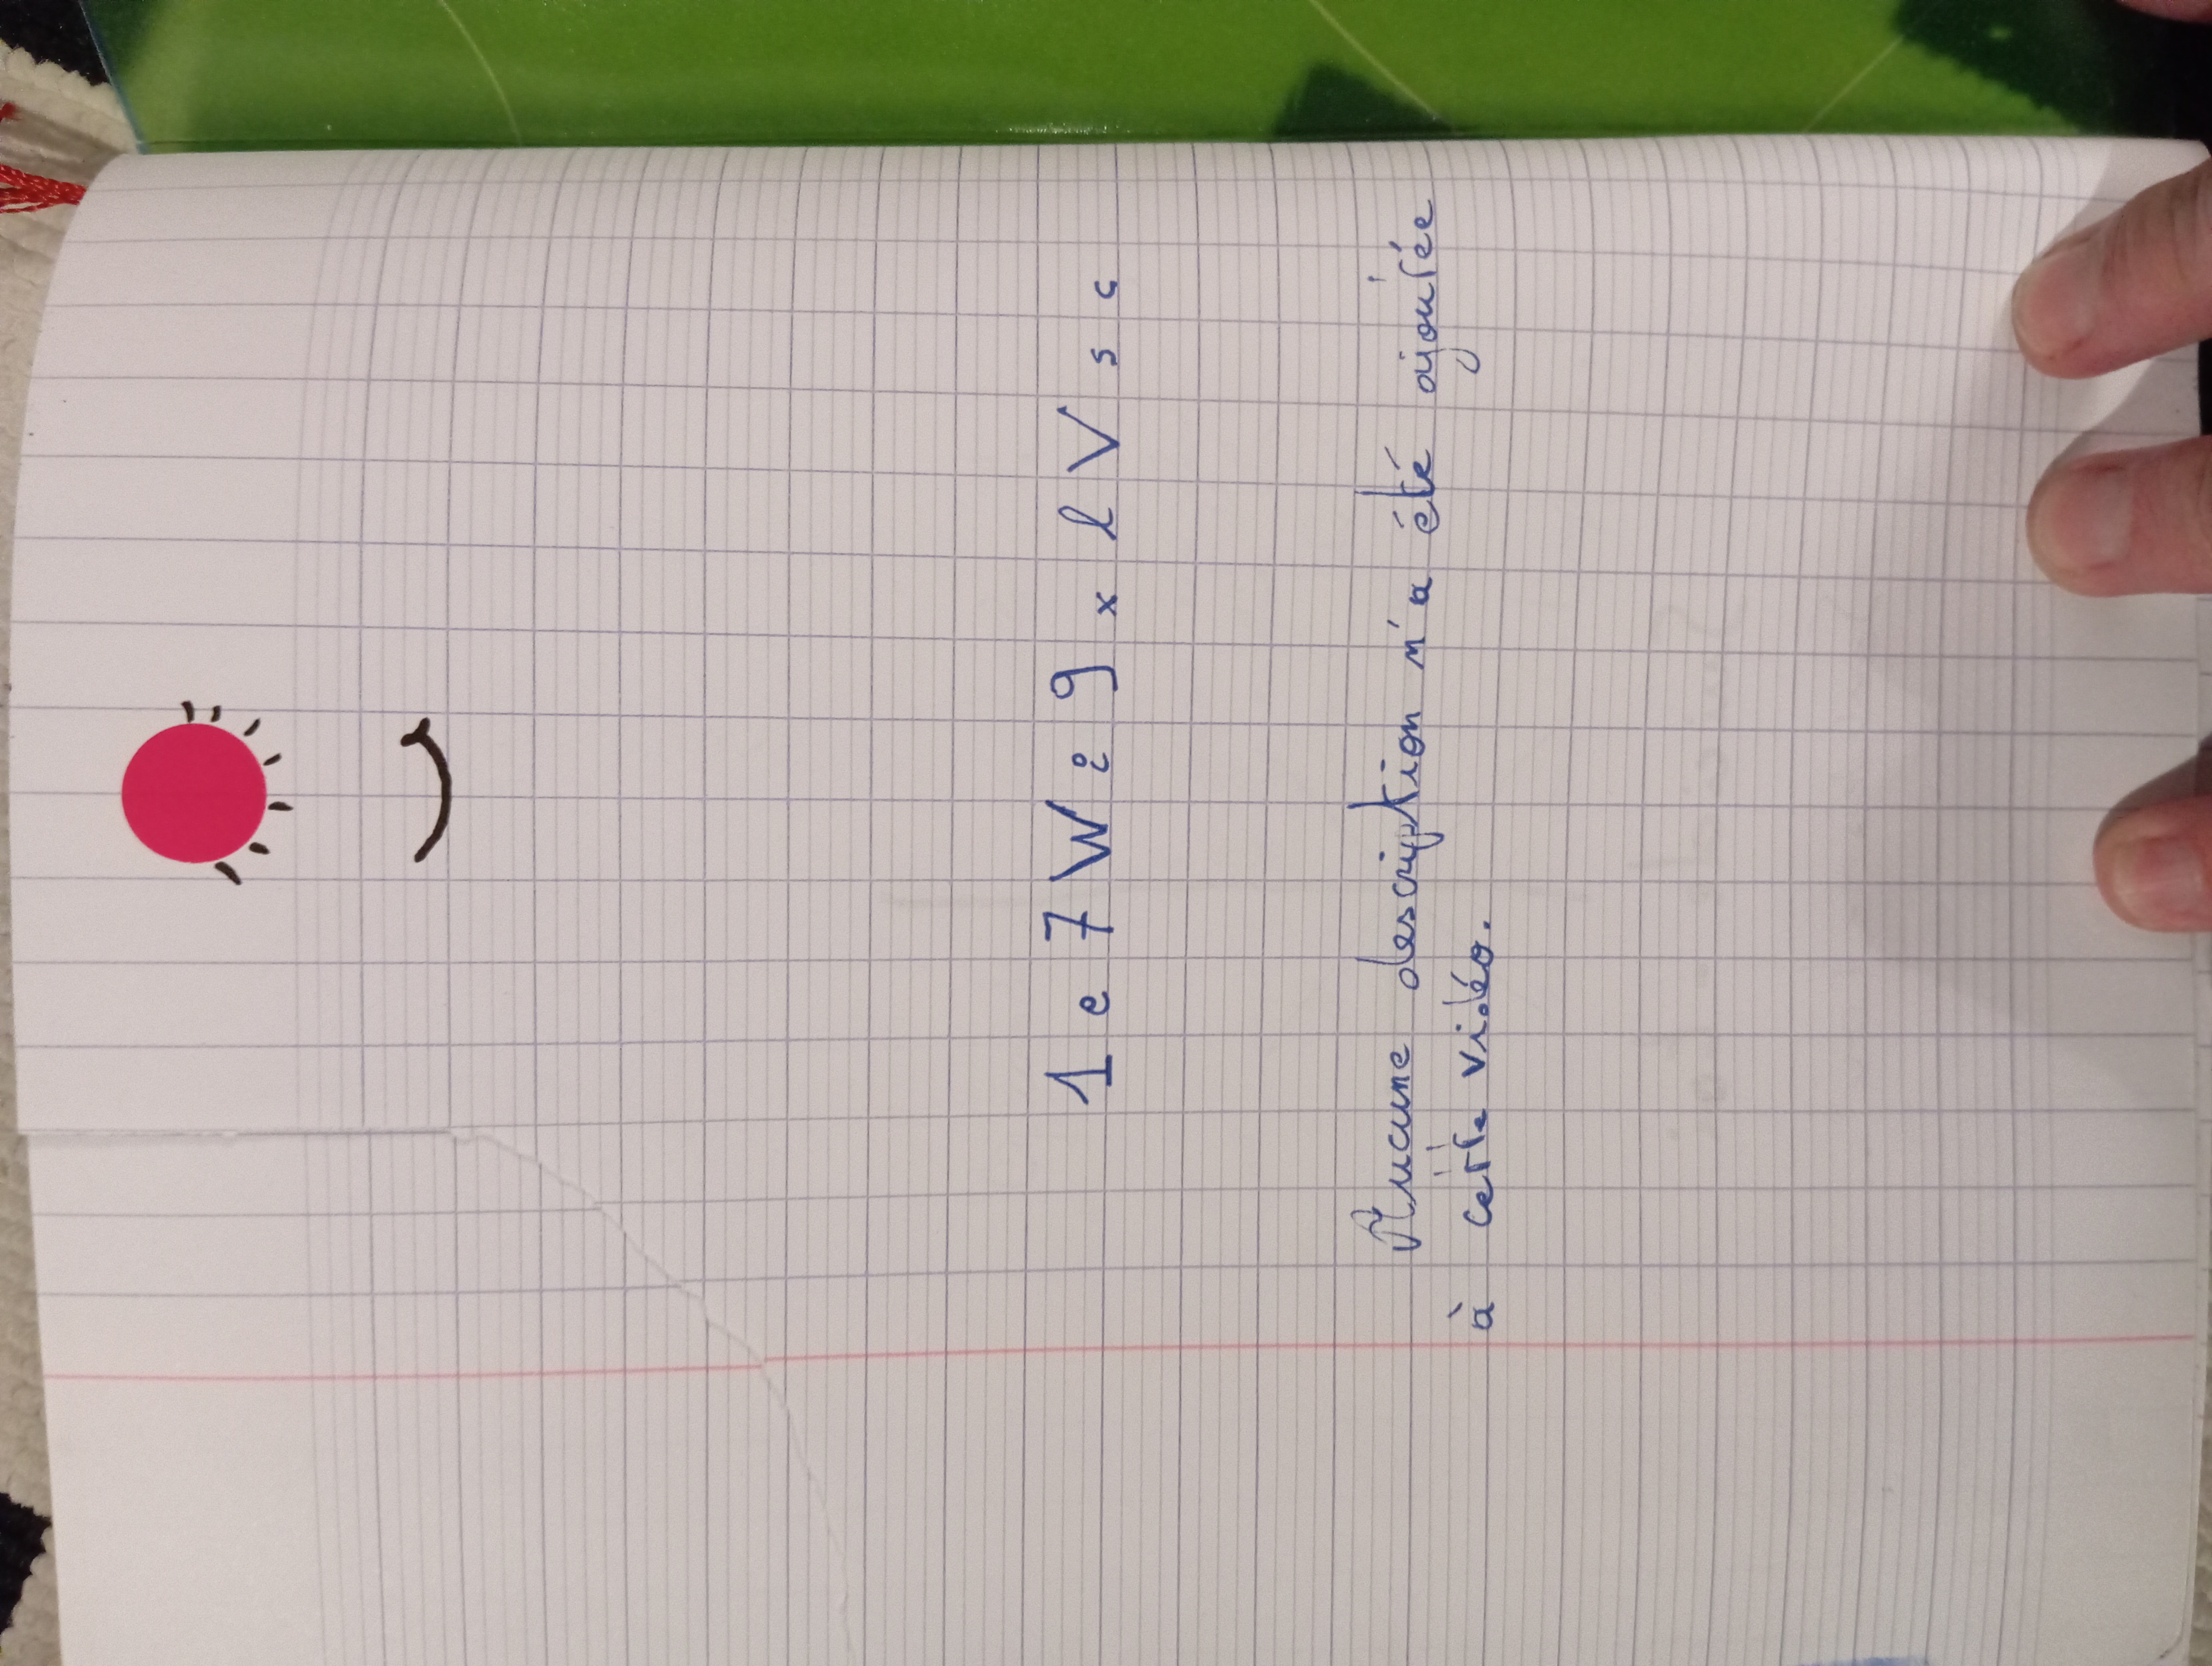 1 e 7 W i 9 x l V s c
Aucune description n'a été ajoutée
à cette vidéo.